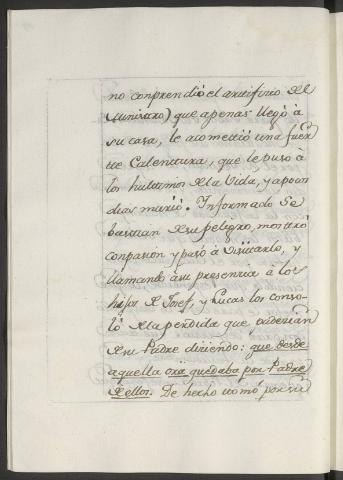 no conprendió el artificio del
Ministro) que apenas llegó à
su casa, le acometió una fuer
te Calentura, que le puso à
los hultimos de la Vida, y a pocos
dias murió. Informado Se
bastian de su peligro, mostró
conpasion y pasó à visitarlo, y
llamando à su presencia à los
hijos de Josef, y Lucas los conso-
ló de la perdida que
de su Padre diciendo: que desde
aquella ora quedaba por Padre
de ellos. De hecho tomó por su